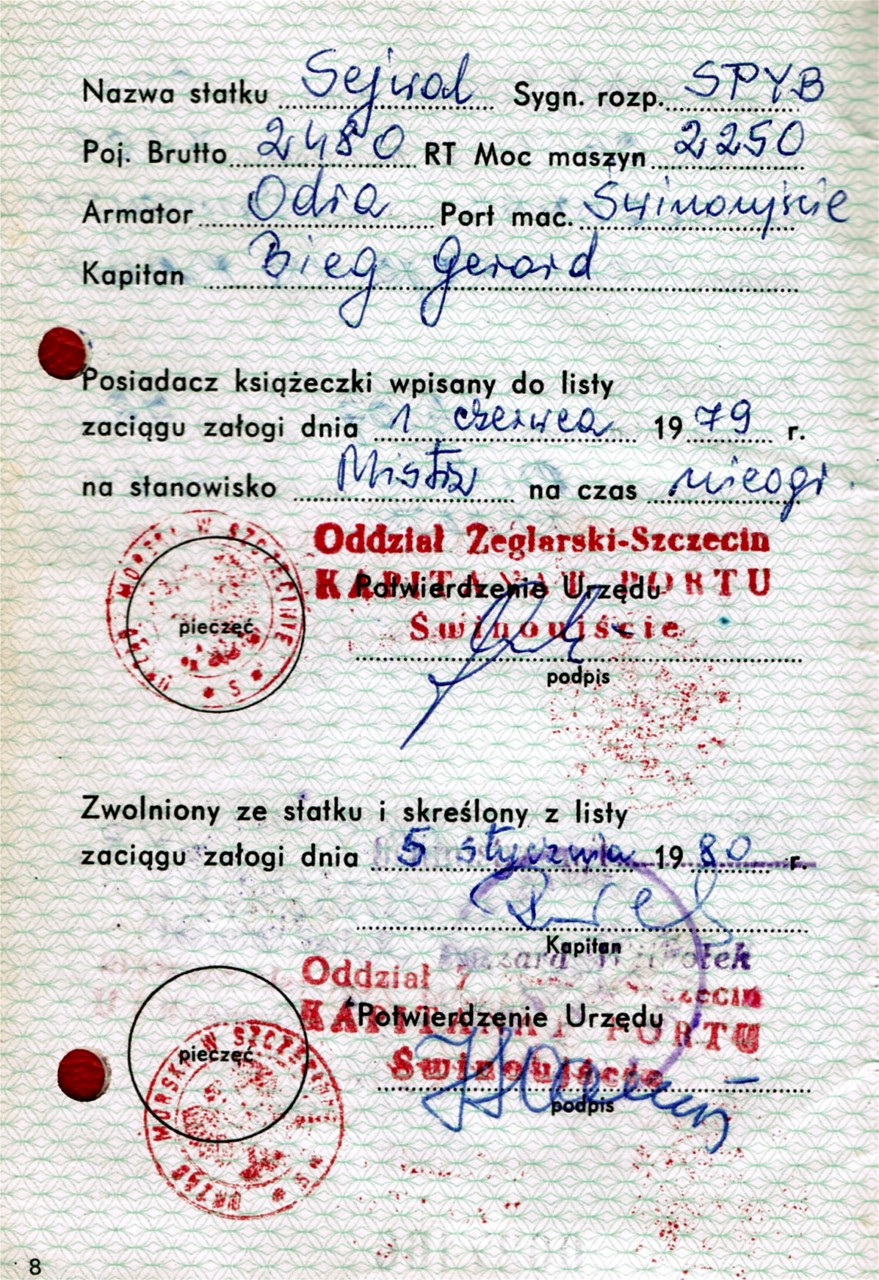 Nazwa statku Sejwal Sygn. rozp. SPYB
Poj. Brutto 2480 RT Moc maszyn 2250
Armator Odra Port mac. Świnoujście
Kapitan Bieg Gerard
Posiadacz książeczki wpisany do listy
zaciągu załogi dnia 1 czerwca 1979 r.
na stanowisko Mistrz na czas nieogr
Oddział Żeglarski-Szczecin
KAPITANAT PORTU
Potwierdzenie Urzędu
Świnoujście
pieczęć
URZĄD MORSKI W SZCZECINIE
* S *
podpis
Zwolniony ze statku i skreślony z listy
zaciągu załogi dnia 5 stycznia 1980 r.
Kapitan
Oddział Szczecin
KAPITANAT PORTU
Potwierdzenie Urzędu
Świnoujście
pieczęć
URZĄD MORSKI W SZCZECINIE
* S *
podpis
8